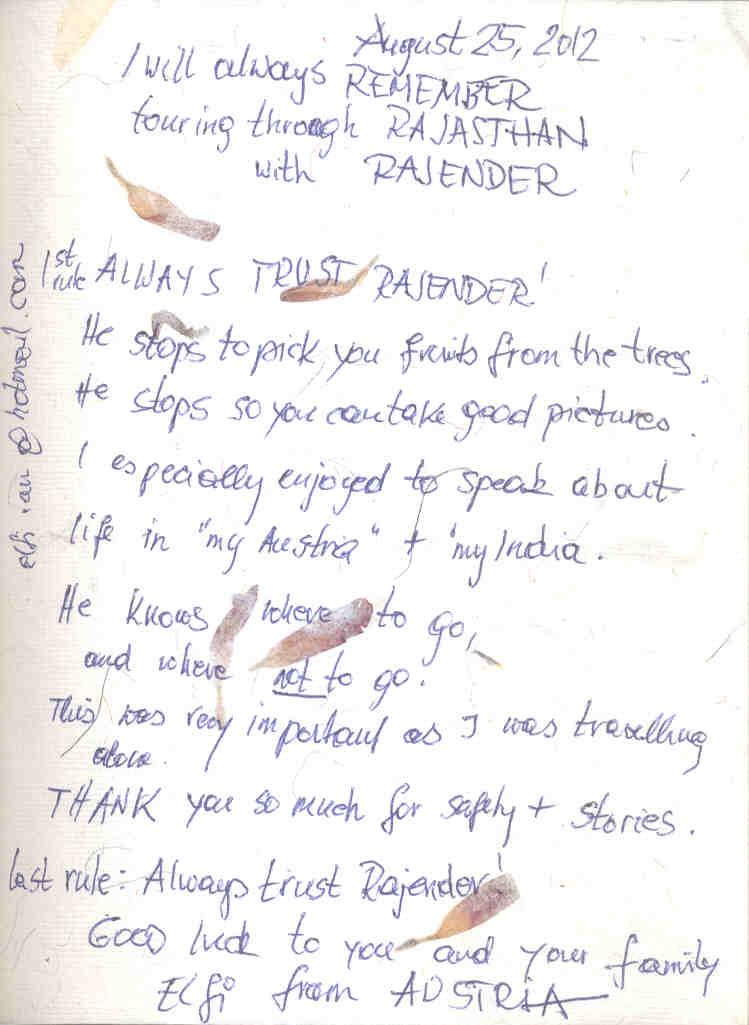 August 25, 2012
I will always REMEMBER
touring through RAJASTHAN
with RAJENDER
1st rule ALWAYS TRUST RAJENDER!
He stops to pick you fruits from the trees.
He stops so you can take good pictures.
I especially enjoyed to speak about
life in "my Austria" + "my India.
He knows where to go,
and where not to go.
This was very important as I was travelling
alone.
THANK you so much for safety + stories.
last rule: Always trust Rajender!
GOOD luck to you and your family
Elfi from AUSTRIA
@hotmail.com